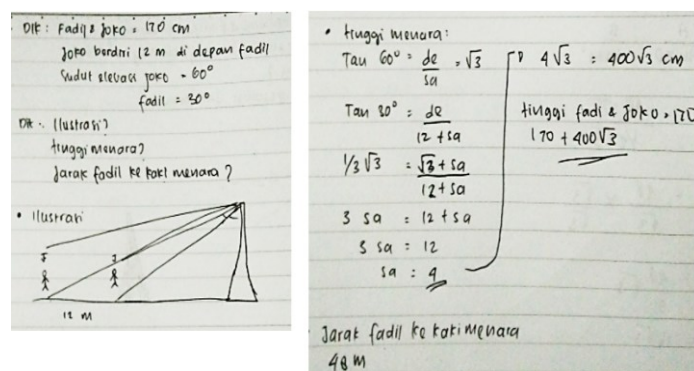 Dik : Fadil & Joko = 170 cm
Joko berdiri 12 m di depan fadil
Sudut elevasi Joko = 60°
fadil = 30°
Dit : Ilustrasi?
tinggi menara?
Jarak fadil ke kaki menara ?
• Ilustrasi
F J
12 m
• tinggi menara :
Tan 60° = de/sa = √3
Tan 30° = de/12 + sa
1/3 √3 = √3 + sa/12 + sa
3 sa = 12 + sa
3 sa = 12
sa = 4
4√3 = 400√3 cm
tinggi fadi & Joko = 170
170 + 400√3
Jarak fadil ke kaki menara
48 m